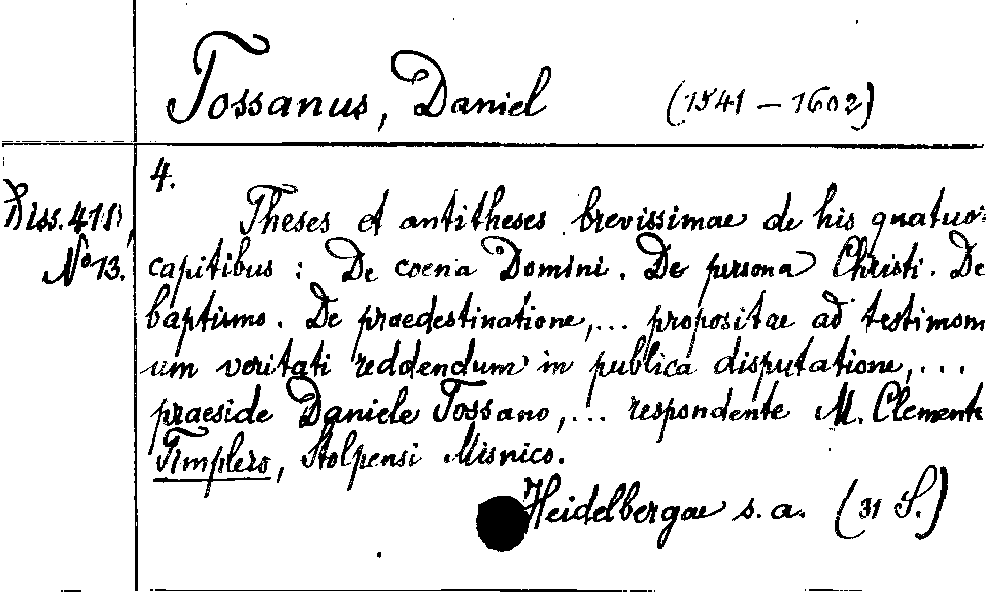 Tossanus, Daniel (1541 – 1602)
4.
Diss. 415,
No 13.
Theses et antitheses brevissimae de his quatuor
capitibus : De coena Domini. De persona Christi. De
baptismo. De praedestinatione,... propositae ad testimoni
um veritati reddendum in publica disputatione,...
praeside Daniele Tossano,... respondente M. Clemente
Timplero, Stolpensi Misnico.
Heidelbergae s. a. (31 S.)